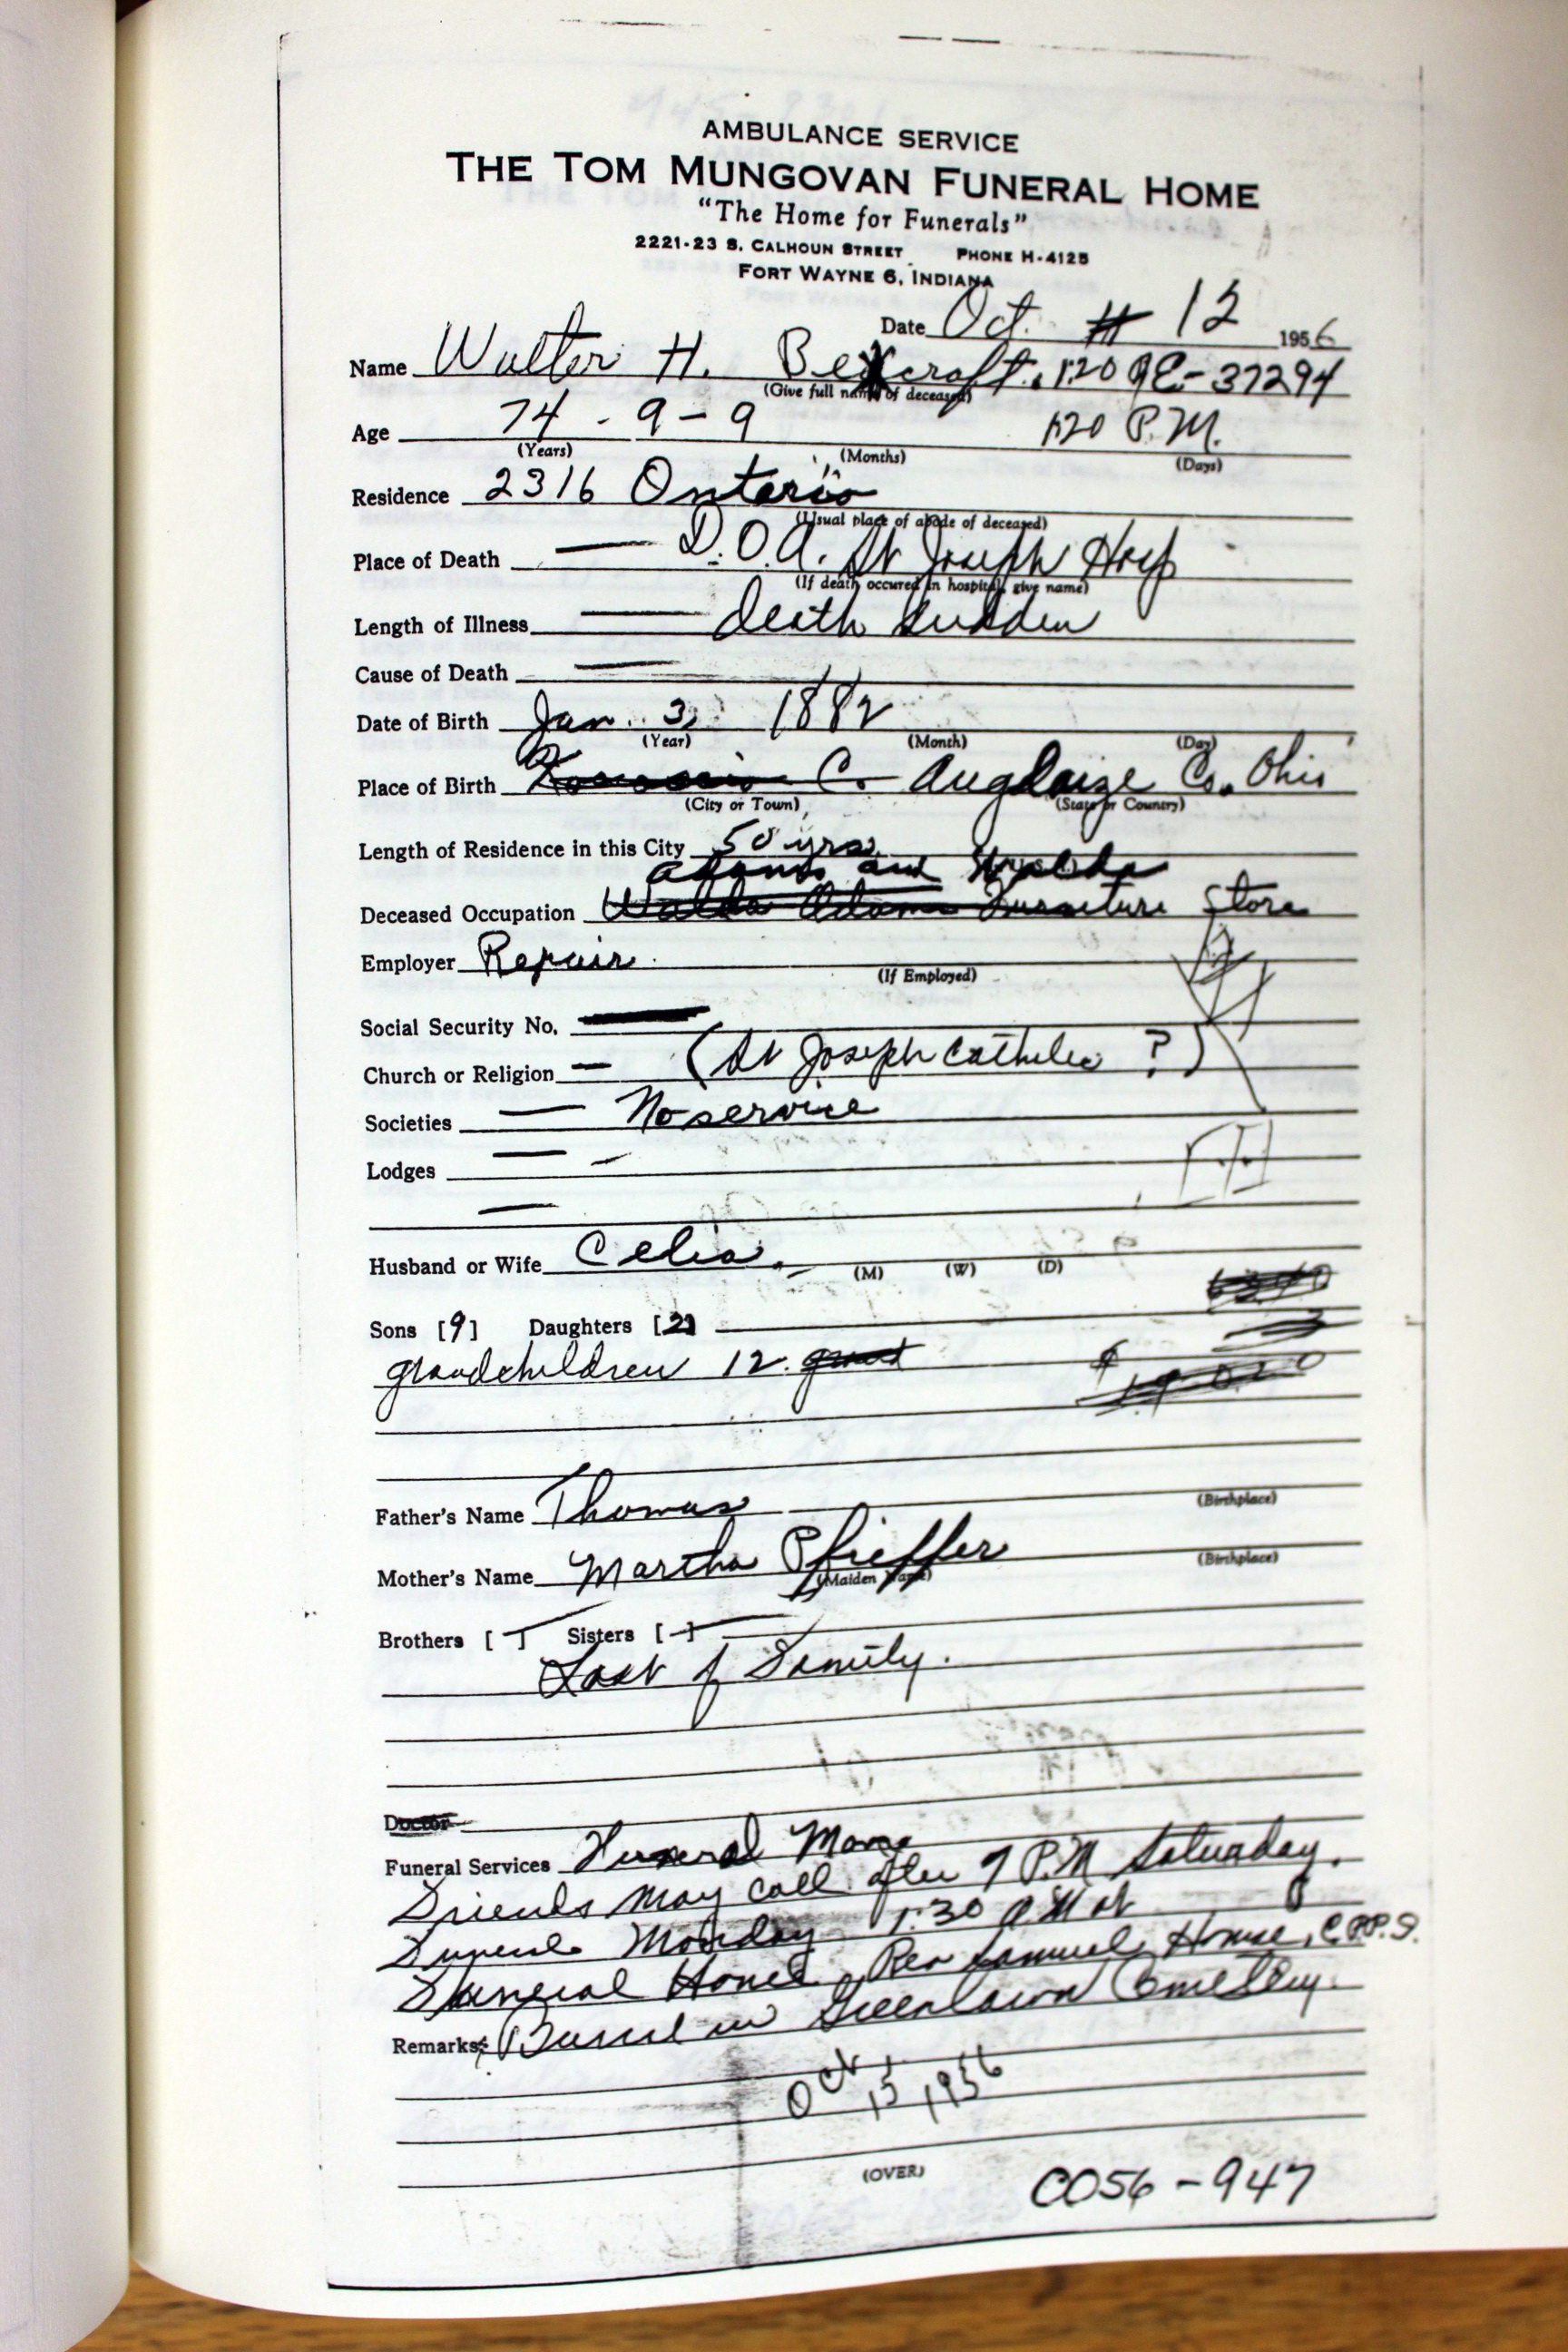 AMBULANCE SERVICE
THE TOM MUNGOVAN FUNERAL HOME
"The Home for Funerals"
2221-23 S. CALHOUN STREET PHONE H-4125
FORT WAYNE 6, INDIANA
Date Oct. 12 1956
Name Walter H. Becraft. 1:20 QE-37294
(Give full name of deceased)
Age 74 - 9 - 9 1:20 P.M.
(Years) (Months) (Days)
Residence 2316 Ontario
(Usual place of abode of deceased)
Place of Death — D.O.A. St Joseph Hosp
(If death occured in hospital, give name)
Length of Illness — death sudden
Cause of Death —
Date of Birth Jan. 3, 1882
(Year) (Month) (Day)
Place of Birth Co. Auglaize Co. Ohio
(City or Town) (State or Country)
Length of Residence in this City 50 yrs.
Adams and Walda
Deceased Occupation Walda Adams Furniture Store
Employer Repair
(If Employed)
Social Security No.
Church or Religion — (St Joseph Catholic ?)
Societies — No service
Lodges — –
—
Husband or Wife Celia. (M) (W) (D)
Sons [9] Daughters [2]
grandchildren 12 great
Father's Name Thomas (Birthplace)
Mother's Name Martha Pfieffer (Birthplace)
(Maiden Name)
Brothers [ - ] Sisters [ - ]
Last of Family.
Doctor
Funeral Services Funeral
Friends may call after 7 P.M Saturday.
Funeral Monday 1:30 at
Funeral Home Rev Samuel House, C.PP.S.
Remarks: Burial in Greenlawn Cemetery.
Oct 15 1956
(OVER)
CO56-947